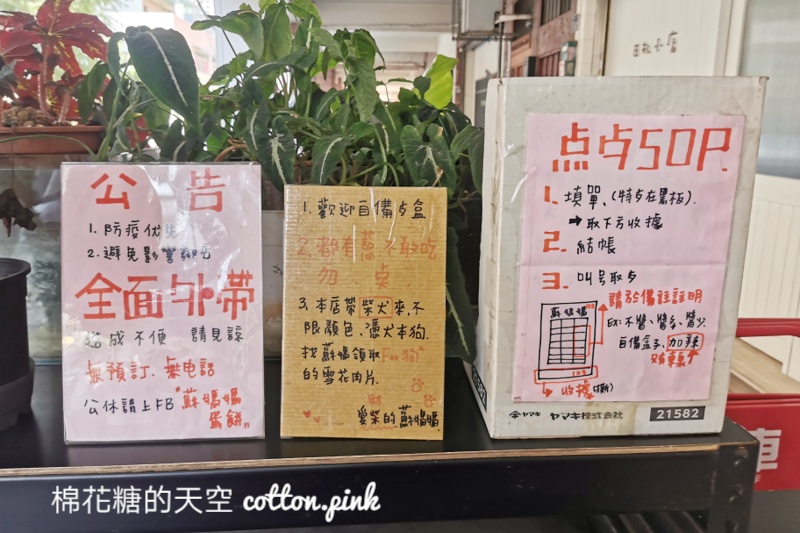 公告
1. 防疫優先
2. 避免影響鄰居
全面外帶
造成不便 請見諒
無預訂.無电話
公休請上FB"蘇媽媽
蛋餅"
1. 歡迎自備点盒
2. 都有蔥 不敢吃
勿 点
3. 本店帶柴犬來,不
限顏色、憑犬本狗.
找蘇媽領取For狗
的雪花肉片.
愛柴的蘇媽媽
点点SOP.
1. 填單、(特点在黑板).
➡取下方收據
2. 結帳
3. 叫号取点
請於備註註明
EX:不醬、醬多、醬少.
自備盒子、加辣
蘇媽媽
收據(撕)
ヤマキ ヤマキ株式会社 21582
棉花糖的天空 cotton.pink